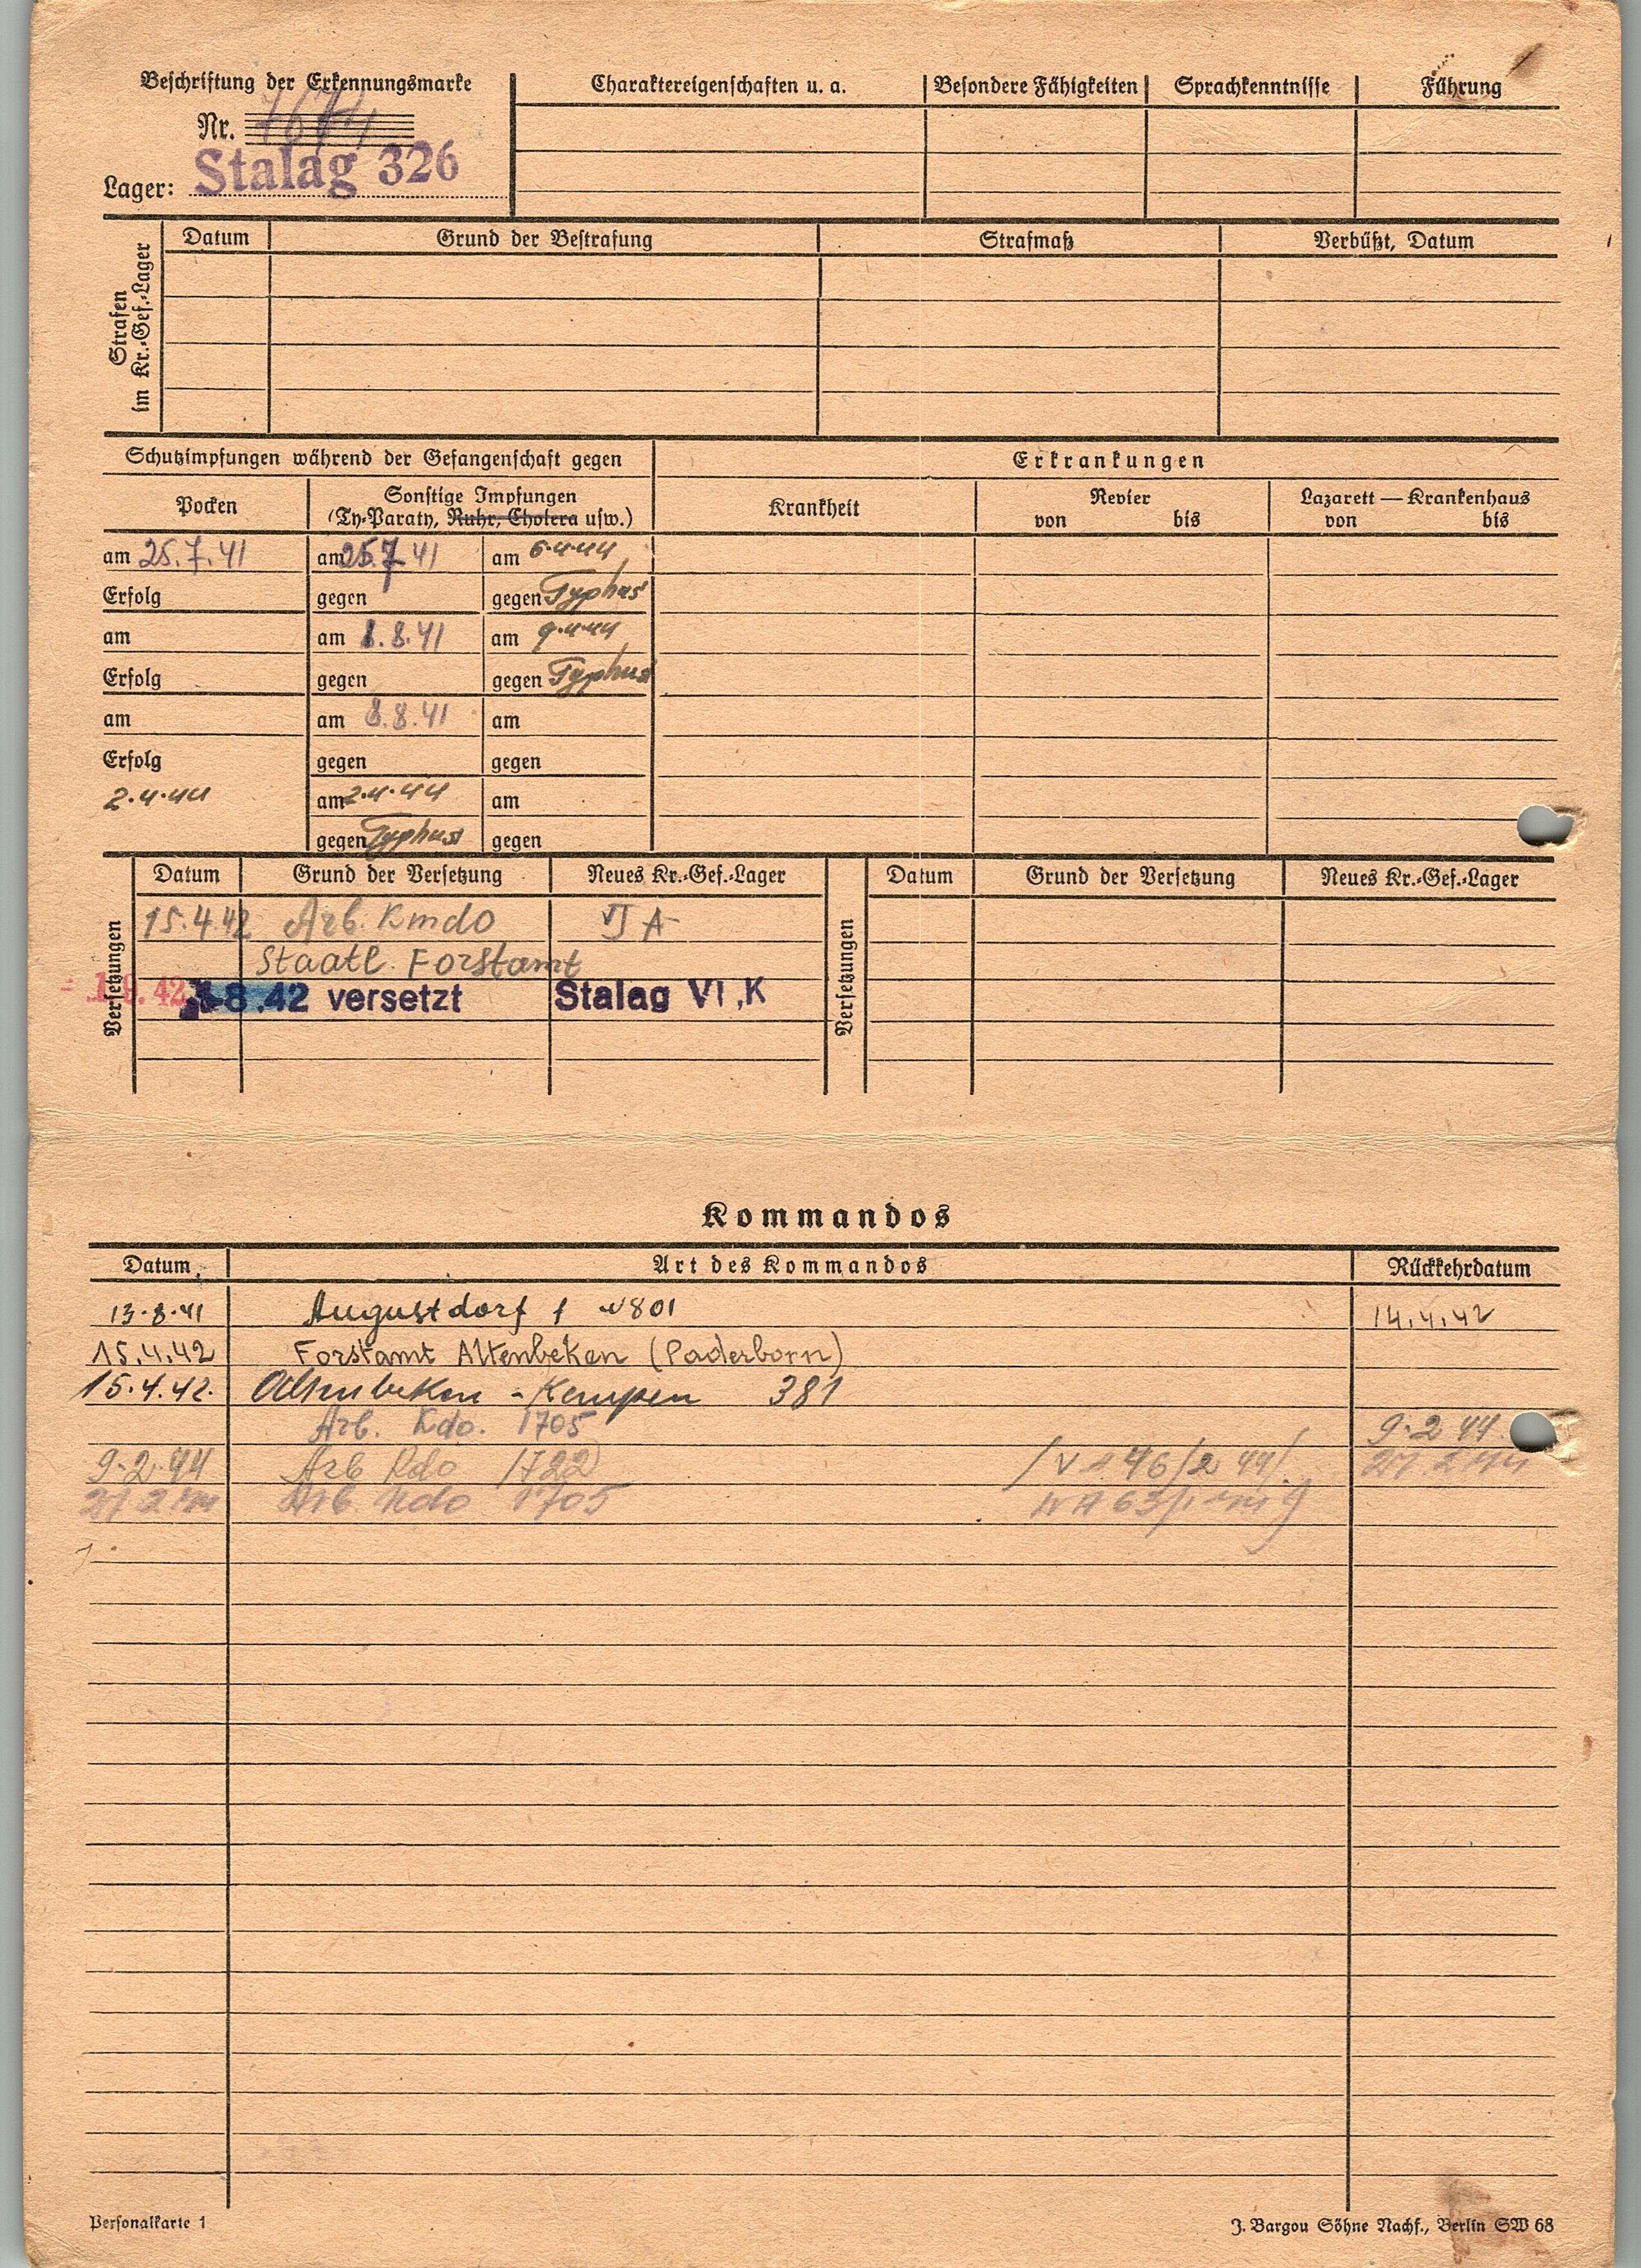 Beschriftung der Erkennungsmarke
Nr. 7674
Lager: Stalag 326
Charaktereigenschaften u. a.
Besondere Fähigkeiten
Sprachkenntnisse
Führung
Strafen
im Kr.-Gef.-Lager
Datum
Grund der Bestrafung
Strafmaß
Verbüßt, Datum
Schutzimpfungen während der Gefangenschaft gegen
Erkrankungen
Pocken
Sonstige Impfungen
(Ty-Paraty, Ruhr, Cholera usw.)
Krankheit
Revier
von bis
Lazarett — Krankenhaus
von bis
am 25.7.41 am 25.7.41 am 6.4.44
Erfolg gegen gegen Typhus
am am 1.8.41 am 9.4.44
Erfolg gegen gegen Typhus
am am 8.8.41 am
Erfolg gegen gegen
2.4.44 am 2.4.44 am
gegen Typhus gegen
Versetzungen
Datum Grund der Versetzung Neues Kr.-Gef.-Lager
15.4.42 Arb. Kmdo VI A
Staatl. Forstamt
8.42 versetzt Stalag VI,K
Versetzungen
Datum Grund der Versetzung Neues Kr.-Gef.-Lager
Kommandos
Datum Art des Kommandos Rückkehrdatum
13.8.41 Augustdorf 1 801 14.4.42
15.4.42 Forstamt Altenbeken (Paderborn)
15.4.42. Altenbeken - Kempen 381
Arb. Kdo. 1705 9.2 44
9.2.44 Arb Kdo 1722 46/2 44/.
Arb Kdo 1705
Personalkarte 1
J. Bargou Söhne Nachf., Berlin SW 68